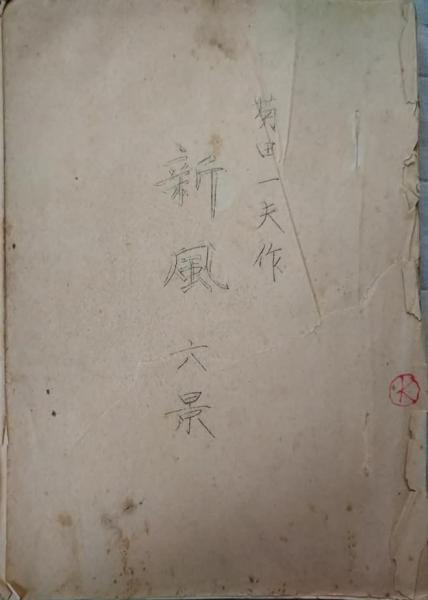 菊田一夫作
新風六景
K